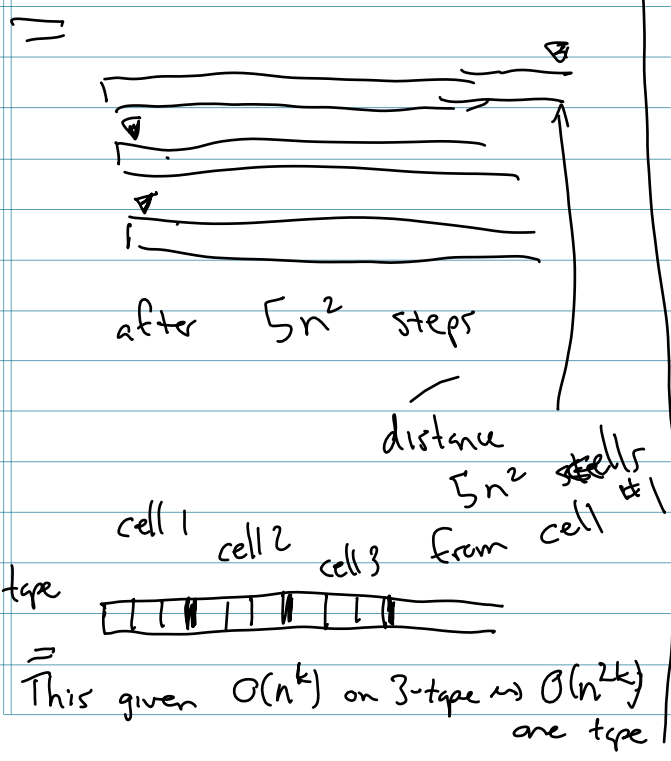 after 5n² steps
distance
5n² cells
from cell #1
cell 1 cell 2 cell 3
tape
This given O(nᵏ) on 3-tape ⇝ O(n²ᵏ)
one tape